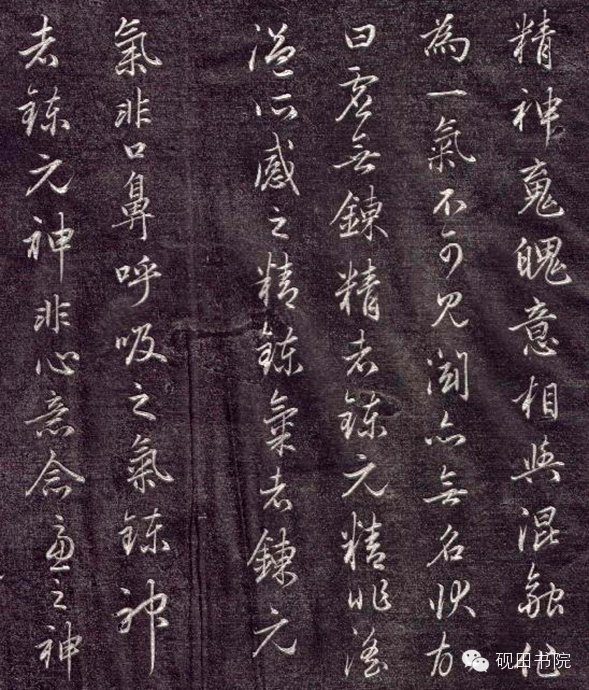 精神䰟魄意相與混融化
為一氣不可見聞亦無名狀故
曰虛無鍊精者鍊元精非淫
溢所感之精鍊氣者鍊元
氣非口鼻呼吸之氣鍊神
者鍊元神非心意念慮之神
砚田书院